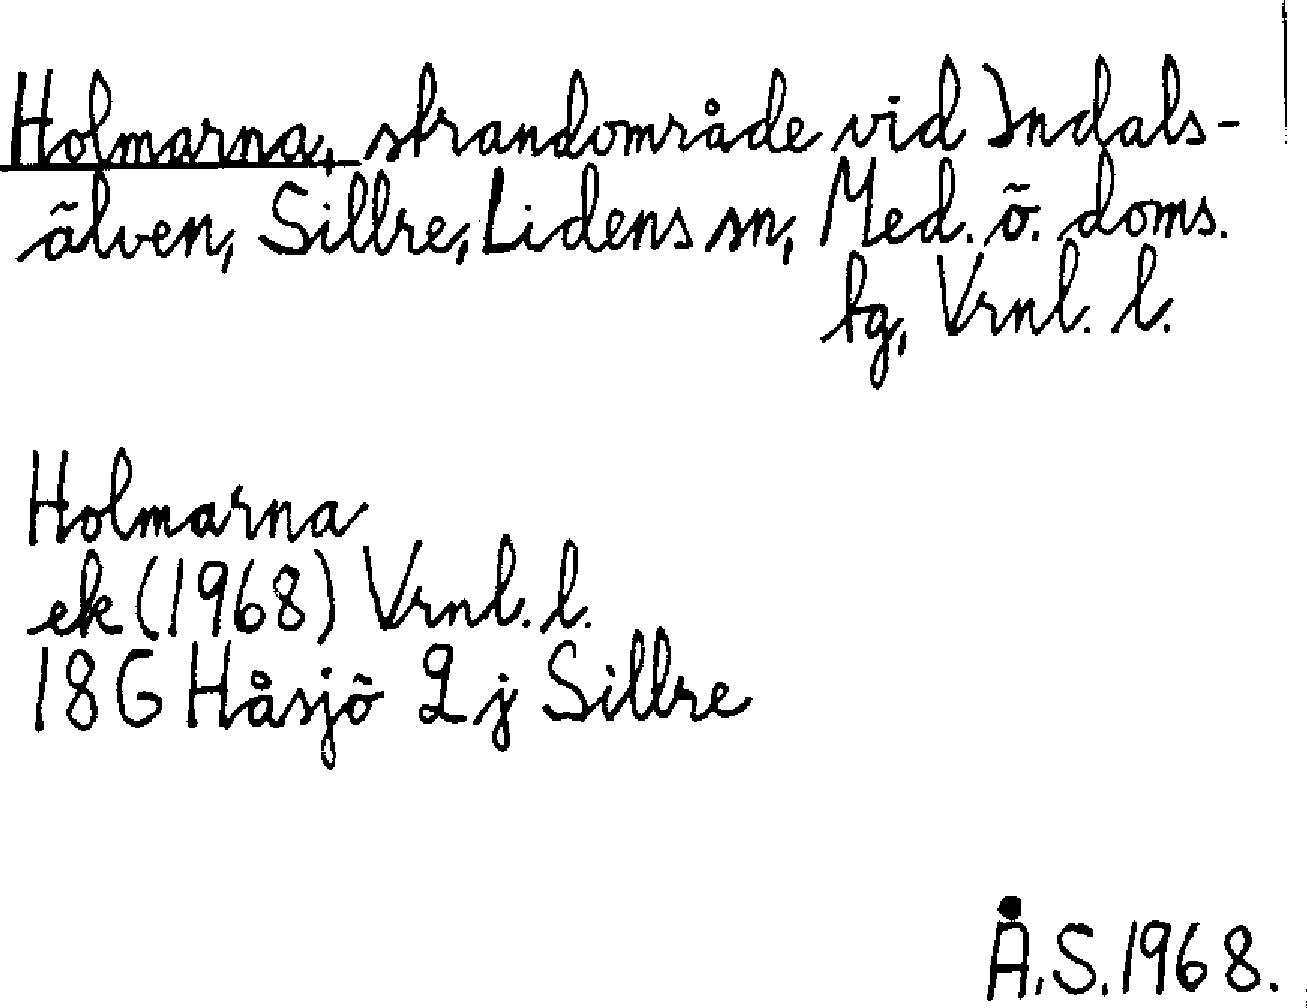 Holmarna, strandområde vid Indals-
älven, Sillre, Lidens sn, Med. ö. doms.
tg, Vrnl. l.
Holmarna
ek (1968) Vrnl. l.
18G Håsjö 2 j Sillre
Å.S. 1968.